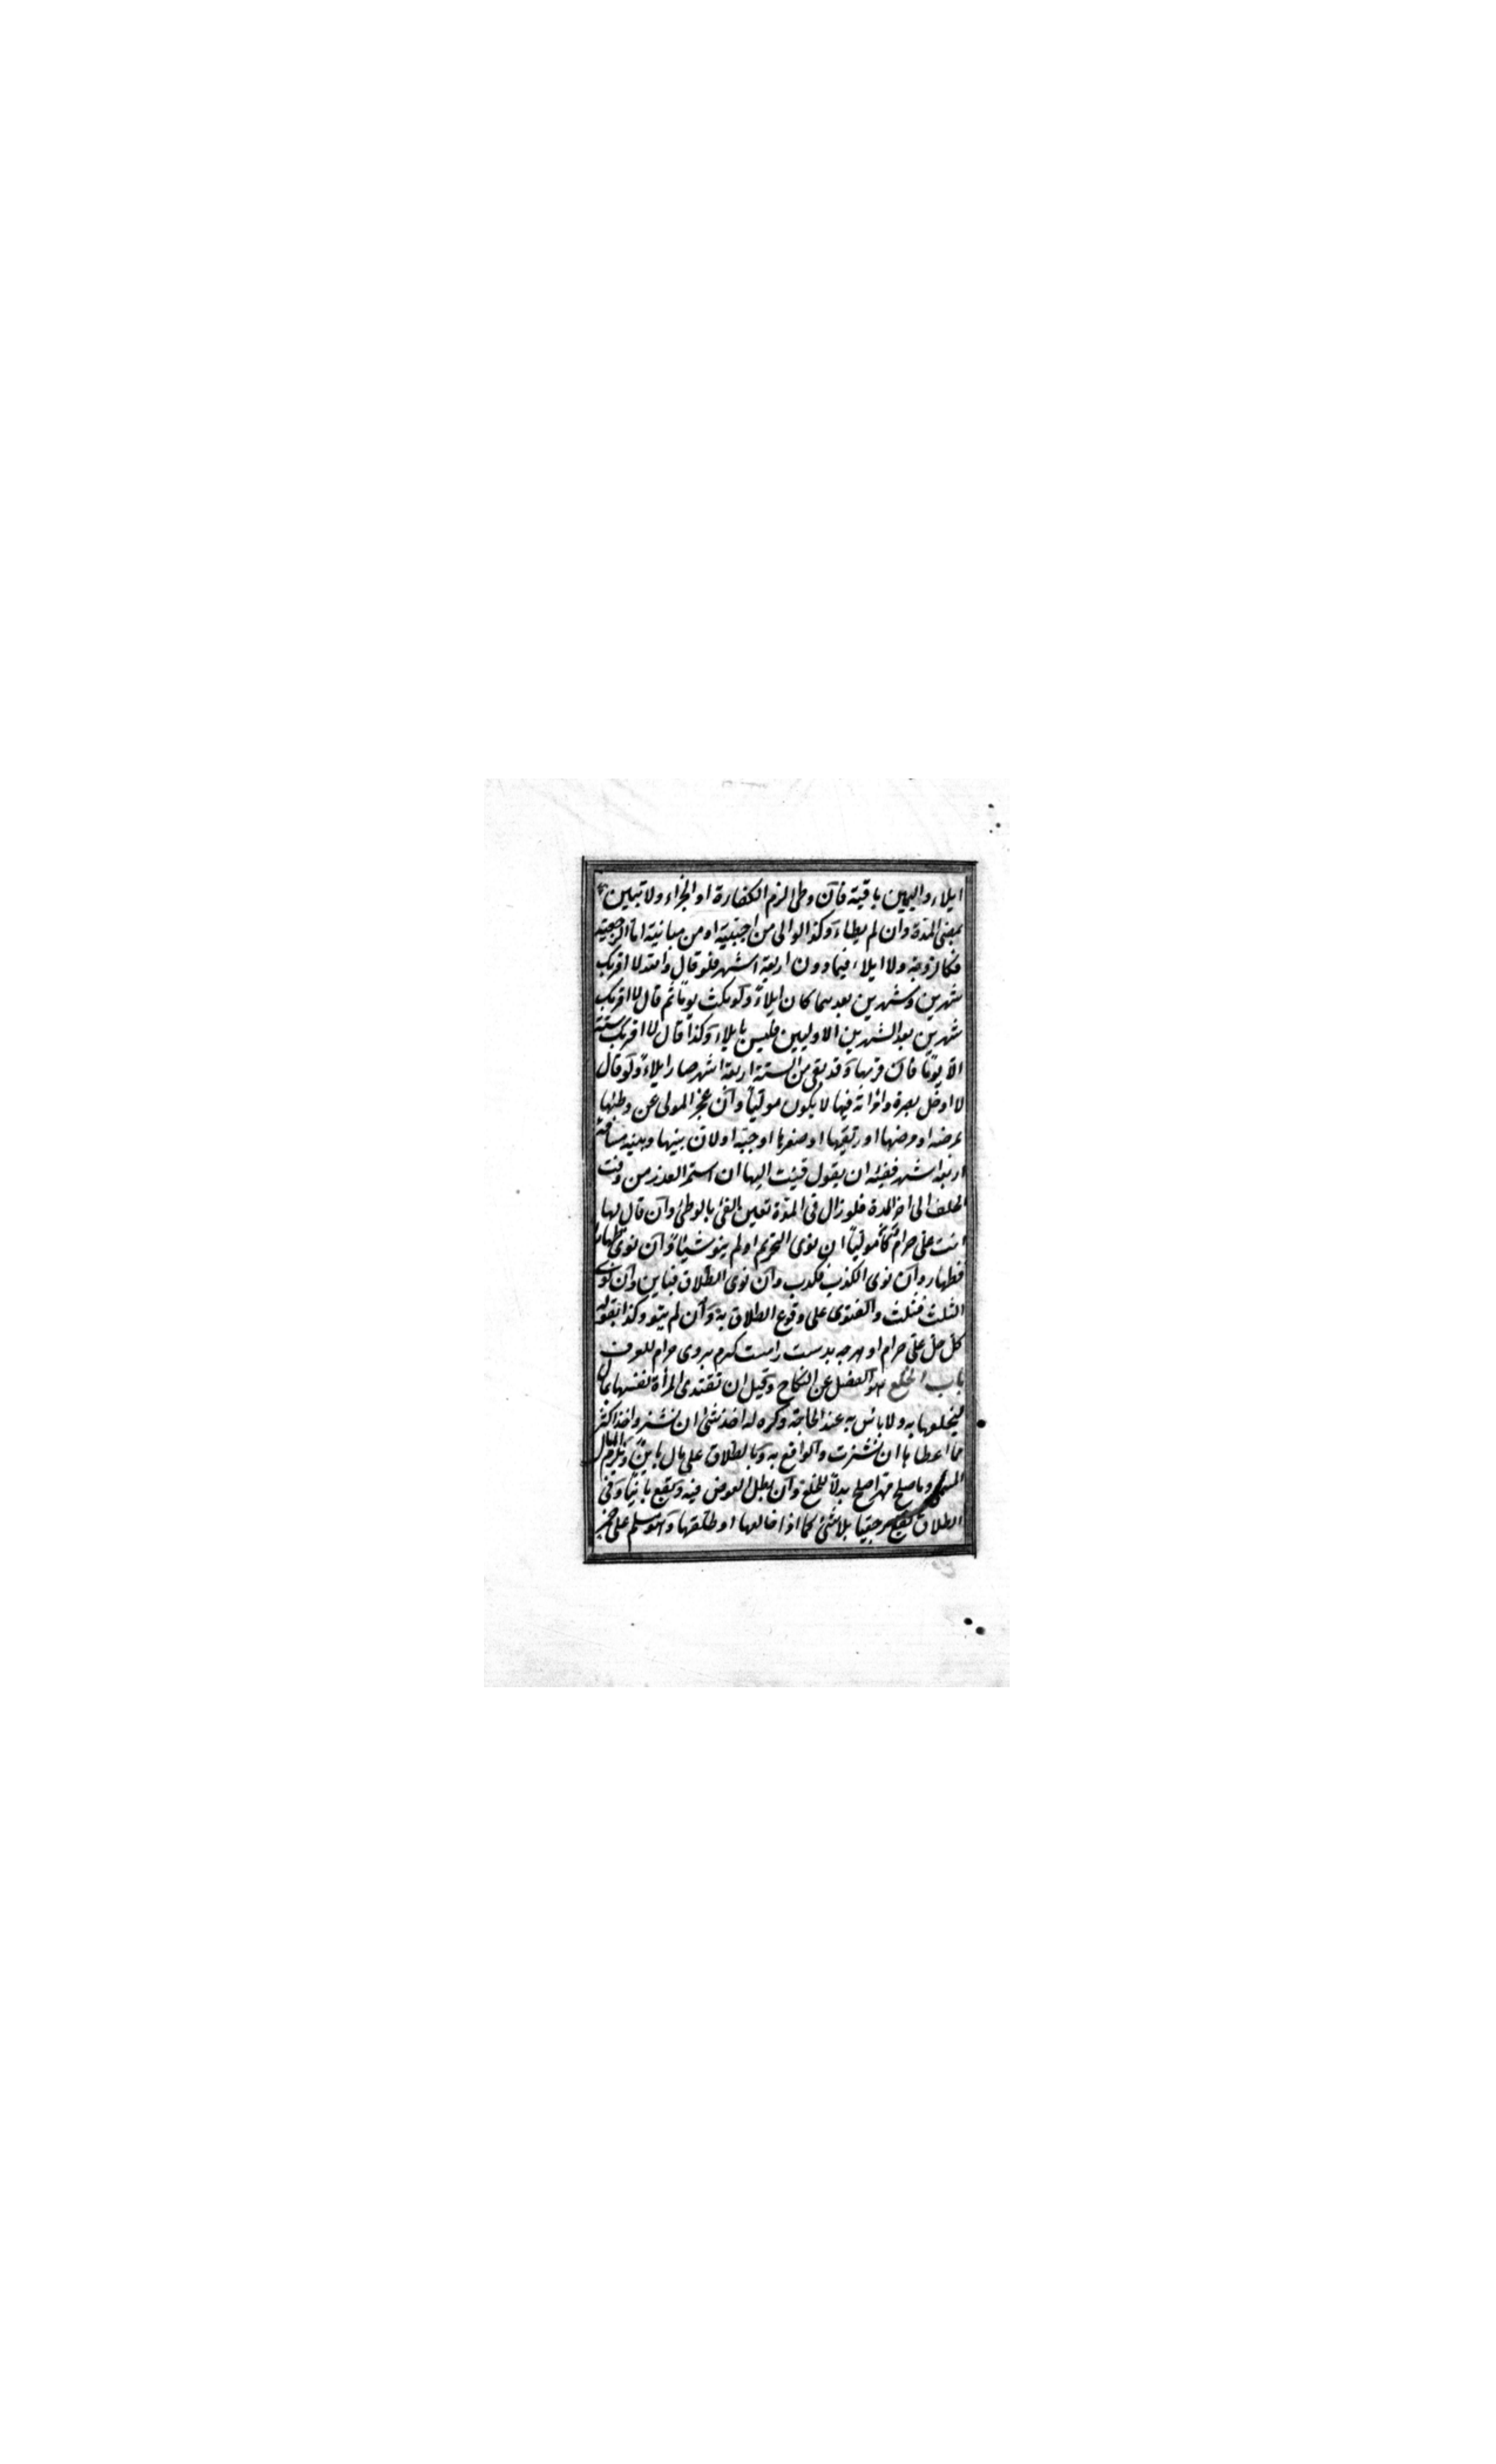 ايلاء واليمين باقية فان وطئ لزم الكفارة او الجزاء ولا تبين
بمضى المدة وان لم يطاء وكذا لو الى من اجنبية او من مبانية اما الرجعية
فكالزوجة ولا ايلاء فيما دون اربعة اشهر فلو قال والله لا اقربك
شهرين وشهرين بعدهما كان ايلاءً ولو مكث يومًا ثم قال لا اقربك
شهرين بعد الشهرين الاوليين فليس بايلاء وكذا قال لا اقربك سنة
الا يومًا فان قربها وقد بقى من السنة اربعة اشهر صار ايلاءً ولو قال
لا ادخل بصرة وامراته فيها لا يكون موليًا وان عجز المولى عن وطئها
بمرضه او مرضها او رتقها او صغرها او جبّه او لان بينها وبينه مسافة
اربعة اشهر ففيئه ان يقول فئت اليها ان استمر العذر من وقت
الحلف الى اخر المدة فلو زال فى المدة تعين الفئ بالوطئ وان قال لها
انت على حرام كان موليًا ان نوى التحريم او لم ينو شيئًا وان نوى ظهارا
فظهار وان نوى الكذب فكذب وان نوى الطلاق فباين وان نوى
الثلث فثلث والفتوى على وقوع الطلاق به وان لم ينو وكذا بقوله
كل حل على حرام او هرچه بدست راست كيرم بروى حرام للعرف
باب الخلع هو الفصل عن النكاح وقيل ان تفتدى المرأة نفسها بمال
ليخلعها به ولا بائس به عند الحاجة وكره له اخذ شئ ان نشز واخذ اكثر
مما اعطاها ان نشزت والواقع به وبالطلاق على مال باين ويلزم المال
المسمى وما صلح مهرا صلح بدلًا للخلع وان بطل العوض فيه ويقع باينًا وفى
الطلاق يقع رجعيا بلا شئ كما اذا خالعها او طلقها وهو مسلم على خمر